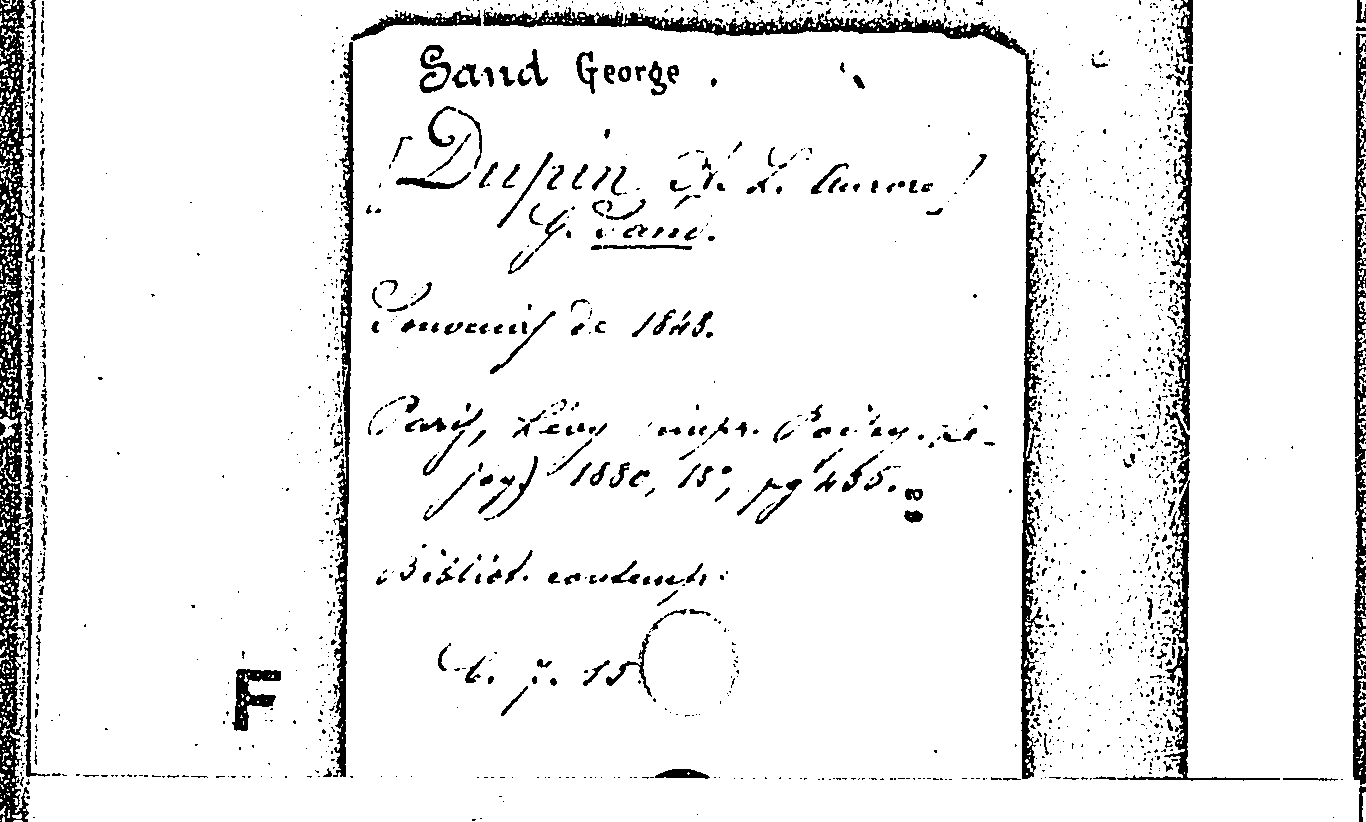 Sand George .
[Dupin A. L. Aurore]
G. Sand.
Souvenirs de 1848.
Paris, Lévy impr.
1880, 18°, pg 435.
Bibliot. contemp.
7. 15
F